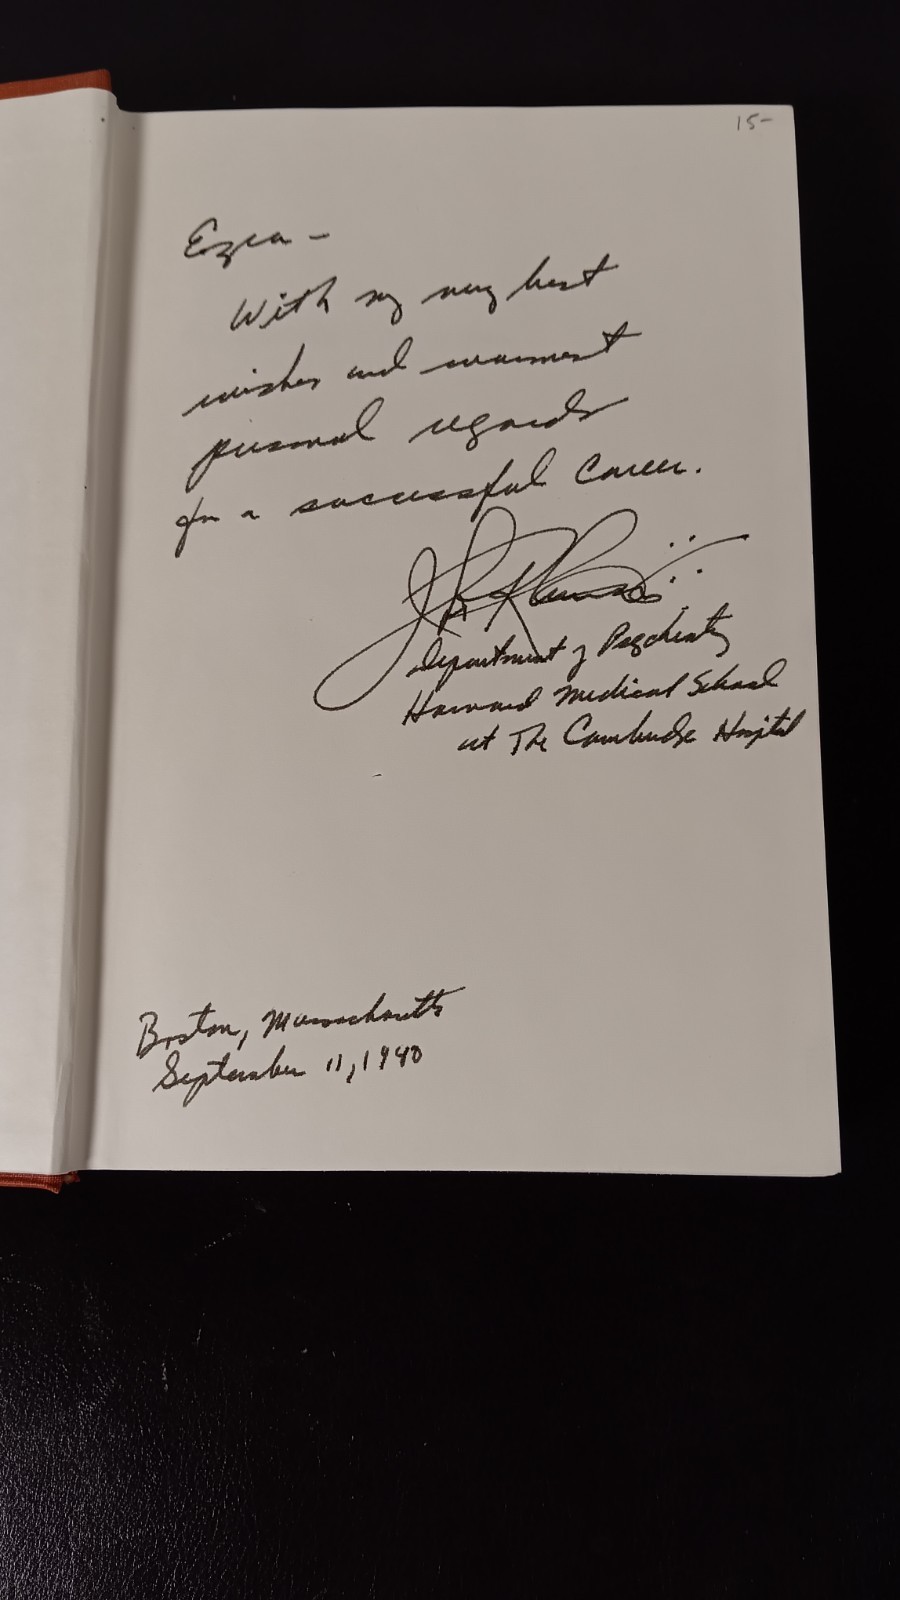 15-
Ezra -
With my very best
wishes and warmest
personal regards
for a successful career.
Department of Psychiatry
Harvard Medical School
at The Cambridge Hospital
Boston, Massachusetts
September 11, 1990